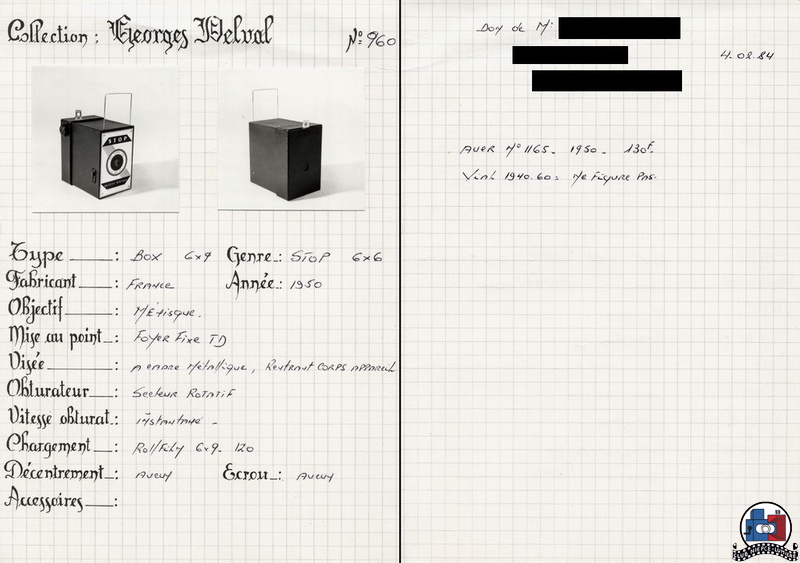 Collection : Georges Delval
N° 960
STOP
Type : BOX 6x9 Genre : STOP 6x6
Fabricant : FRANCE Année : 1950
Objectif : Ménisque.
Mise au point : Foyer Fixe TD
Visée : A CADRE Métallique, Rentrant CORPS APPAREIL
Obturateur : Secteur ROTATIF
Vitesse obturat. : instantané -
Chargement : RollFilm 6x9. 120
Décentrement : AUCUN Ecrou : AUCUN
Accessoires :
Don de Mr
4.02.84
AUER N° 1165 - 1950 - 130F.
1940.60 : Ne Figure Pas.